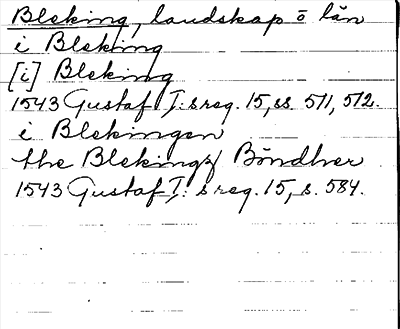 Bleking, landskap o län
i Bleking
[i] Bleking
1543 Gustaf I: s reg. 15, ss. 511, 512.
i Blekingen
the Blekings Böndher
1543 Gustaf I: s reg. 15, s. 584.